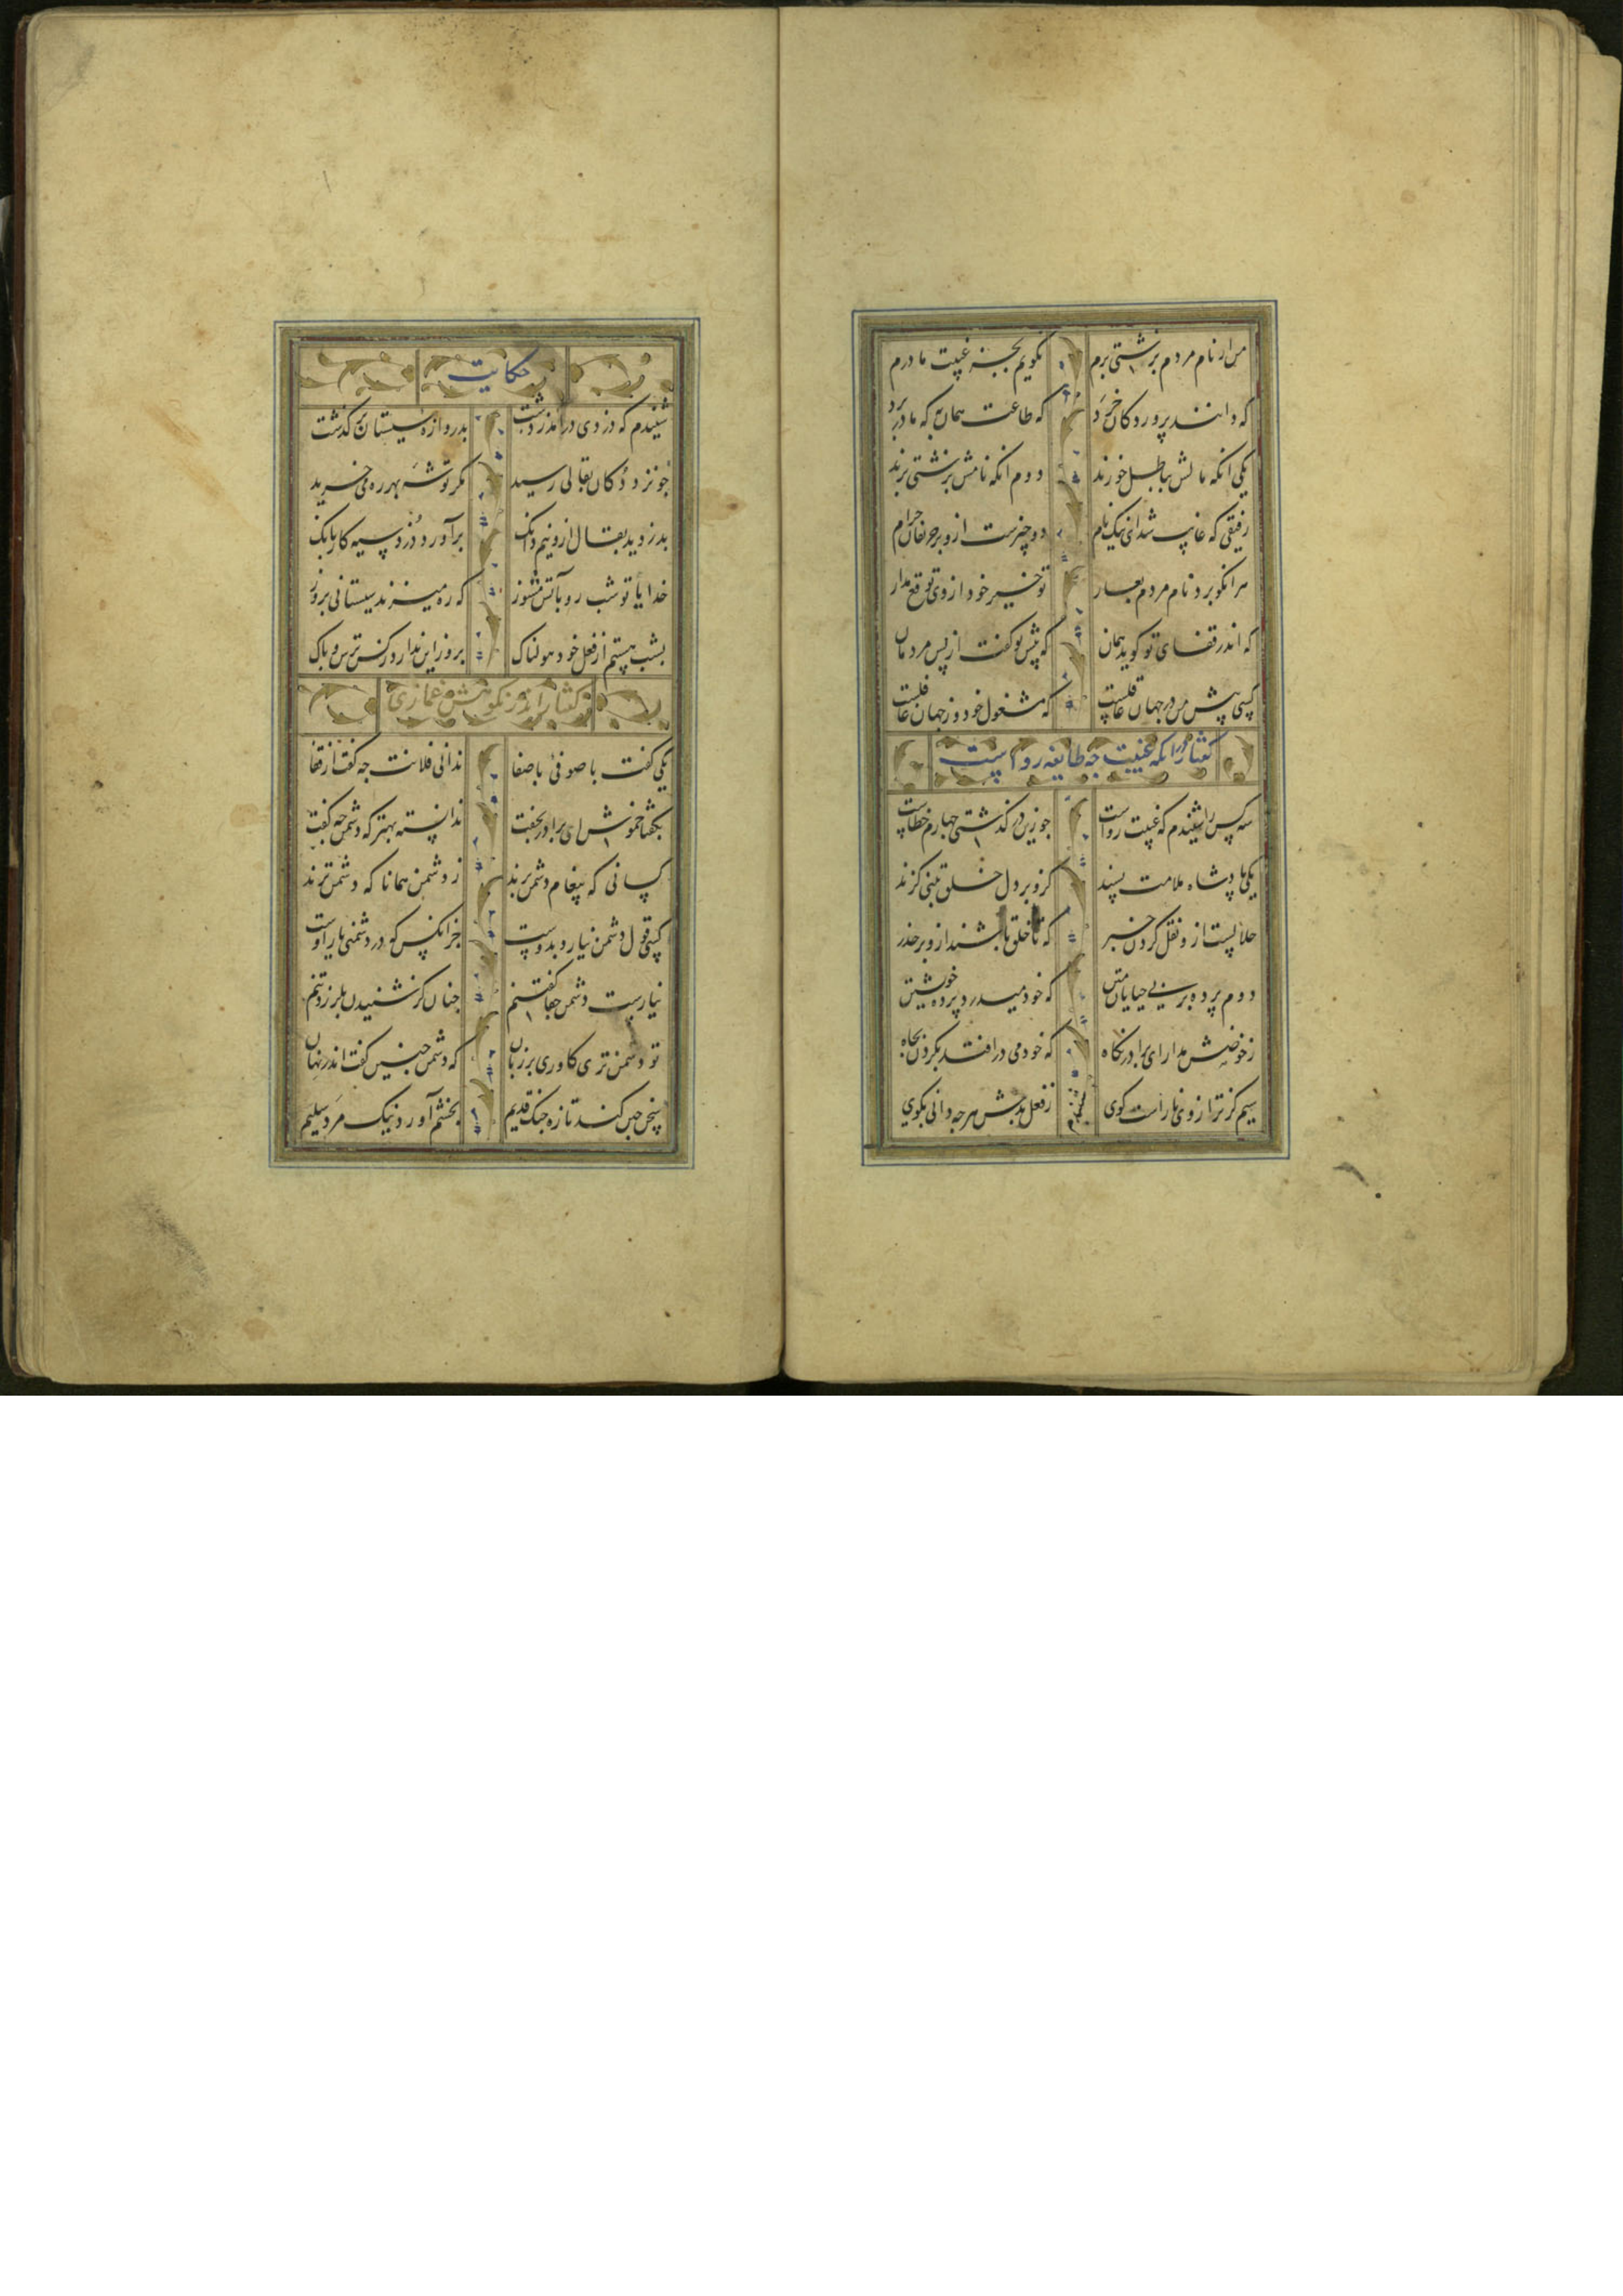 من ار نام مردم بزشتی برم نکویم بجز غیبت مادرم
که دانند پروردکان خرد که طاعت همان به که مادر برد
یکی انکه مالش بباطل خورند دوم انکه نامش بزشتی برند
رفیقی که غایب شد ای نیک نام دو چیزست ازو بر حریفان حرام
هر انکو برد نام مردم بعار تو خیر خود از وی توقع مدار
که اندر قفای تو کوید همان که پیش تو کفت از پس مردمان
کسی پیش من در جهان عاقلست که مشغول خود وز جهان غافلست
کفتار در انکه غیبت چه طایفه رواست
سه کس را شنیدم که غیبت رواست جو زین در کذشتی جهارم خطاست
یکی پادشاه ملامت پسند کزو بر دل خلق بینی کزند
حلالست ازو نقل کردن خبر که تا خلق باشند ازو بر حذر
دوم پرده بر بی حیایی متن که خود میدرد پرده خویشتن
ز حوضش مدار ای برادر نکاه که خود می درافتد بکردن بچاه
سیم کژ ترازوی ناراست کوی ز فعل بدش هر جه دانی بکوی
حکایت
شنیدم که دزدی درامد ز دشت بدروازه سیستان بر کذشت
جو نزد دکان بقالی رسید مکر توشه بهر ره می خرید
بدزدید بقال ازو نیم دانک برآورد دزد سیه کار بانک
خدایا تو شب رو بآتش مسوز که ره میزند سیستانی بروز
بشب هستم از فعل خود هولناک بروز این ندارد ز کس ترس و باک
کفتار اندر نکوهش غمازی
یکی کفت با صوفی با صفا ندانی فلانت جه کفت از قفا
بکفتا خموش ای برادر بخفت ندانسته بهتر که دشمن جه کفت
کسانی که پیغام دشمن برند ز دشمن همانا که دشمن ترند
کسی قول دشمن نیارد بدوست جز انکس که در دشمنی یار اوست
نیارست دشمن جفا کفتنم جنان کز شنیدن بلرزد تنم
تو دشمن تری کاوری بر زبان که دشمن جنین کفت اندر نهان
سخن جین کند تازه جنک قدیم بخشم آورد نیک مرد سلیم